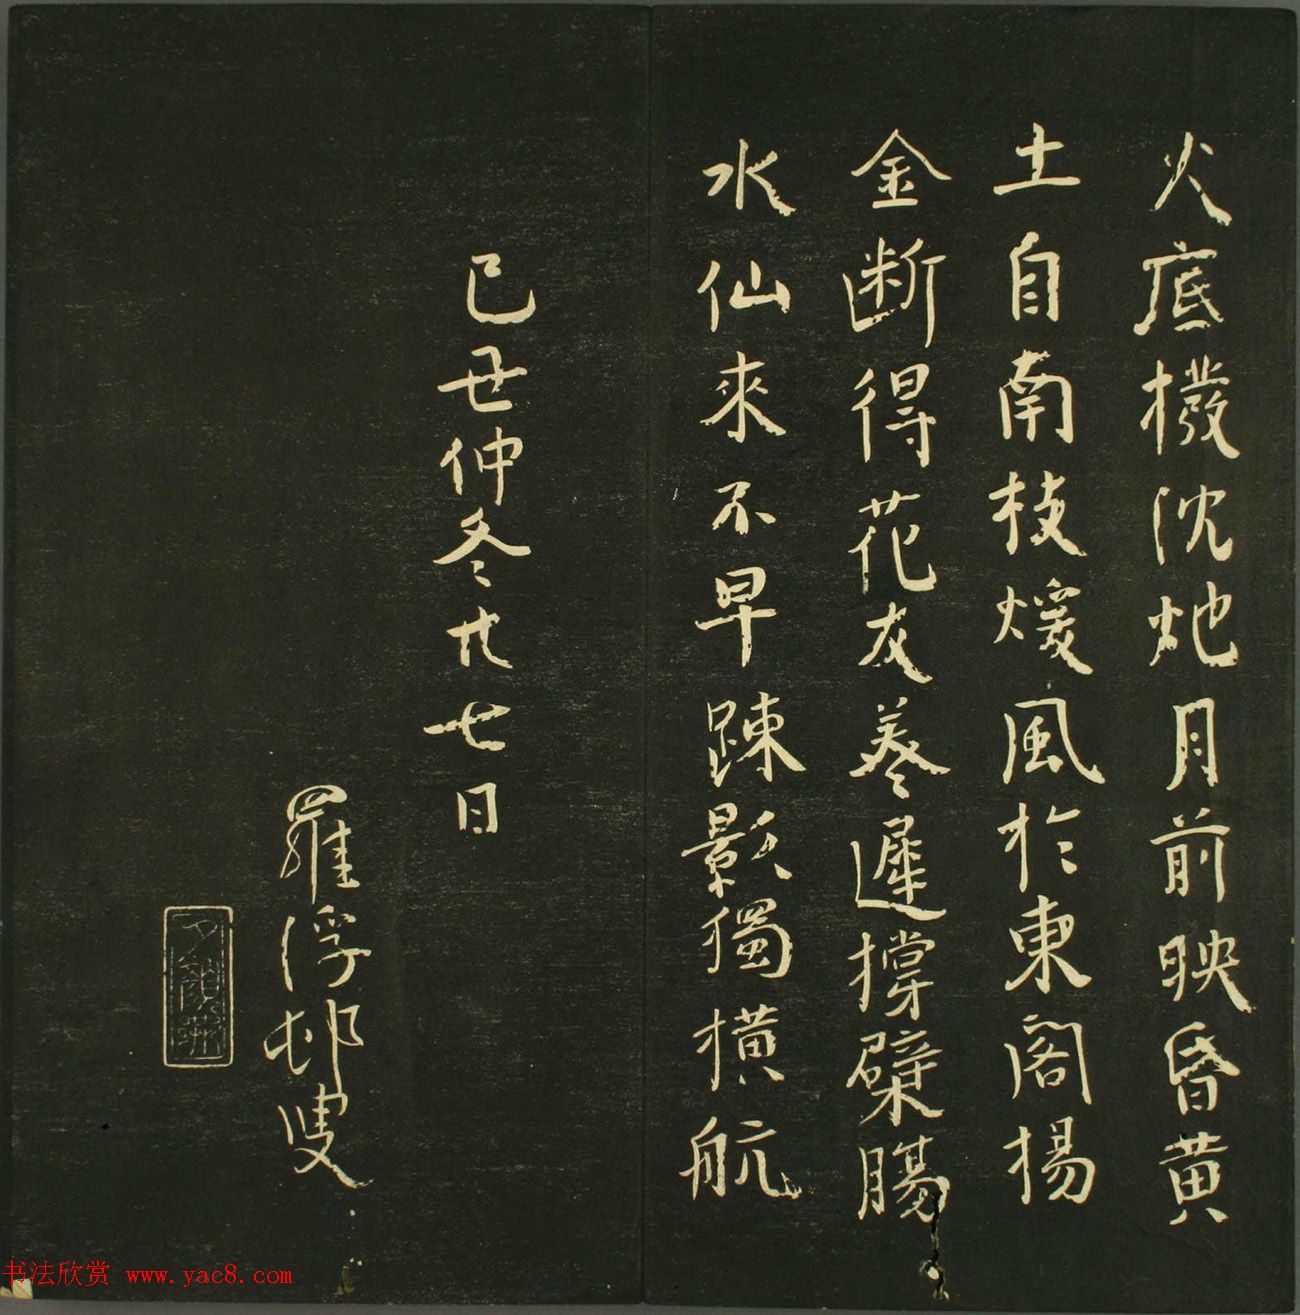 火底撥沈灺月前映昏黄
土自南枝煖風於東閣揚
金断得花灰養遲撐檗腸
水仙來不早踈影獨横航
己丑仲冬廿七日
羅浮邨叟
书法欣赏 www.yac8.com